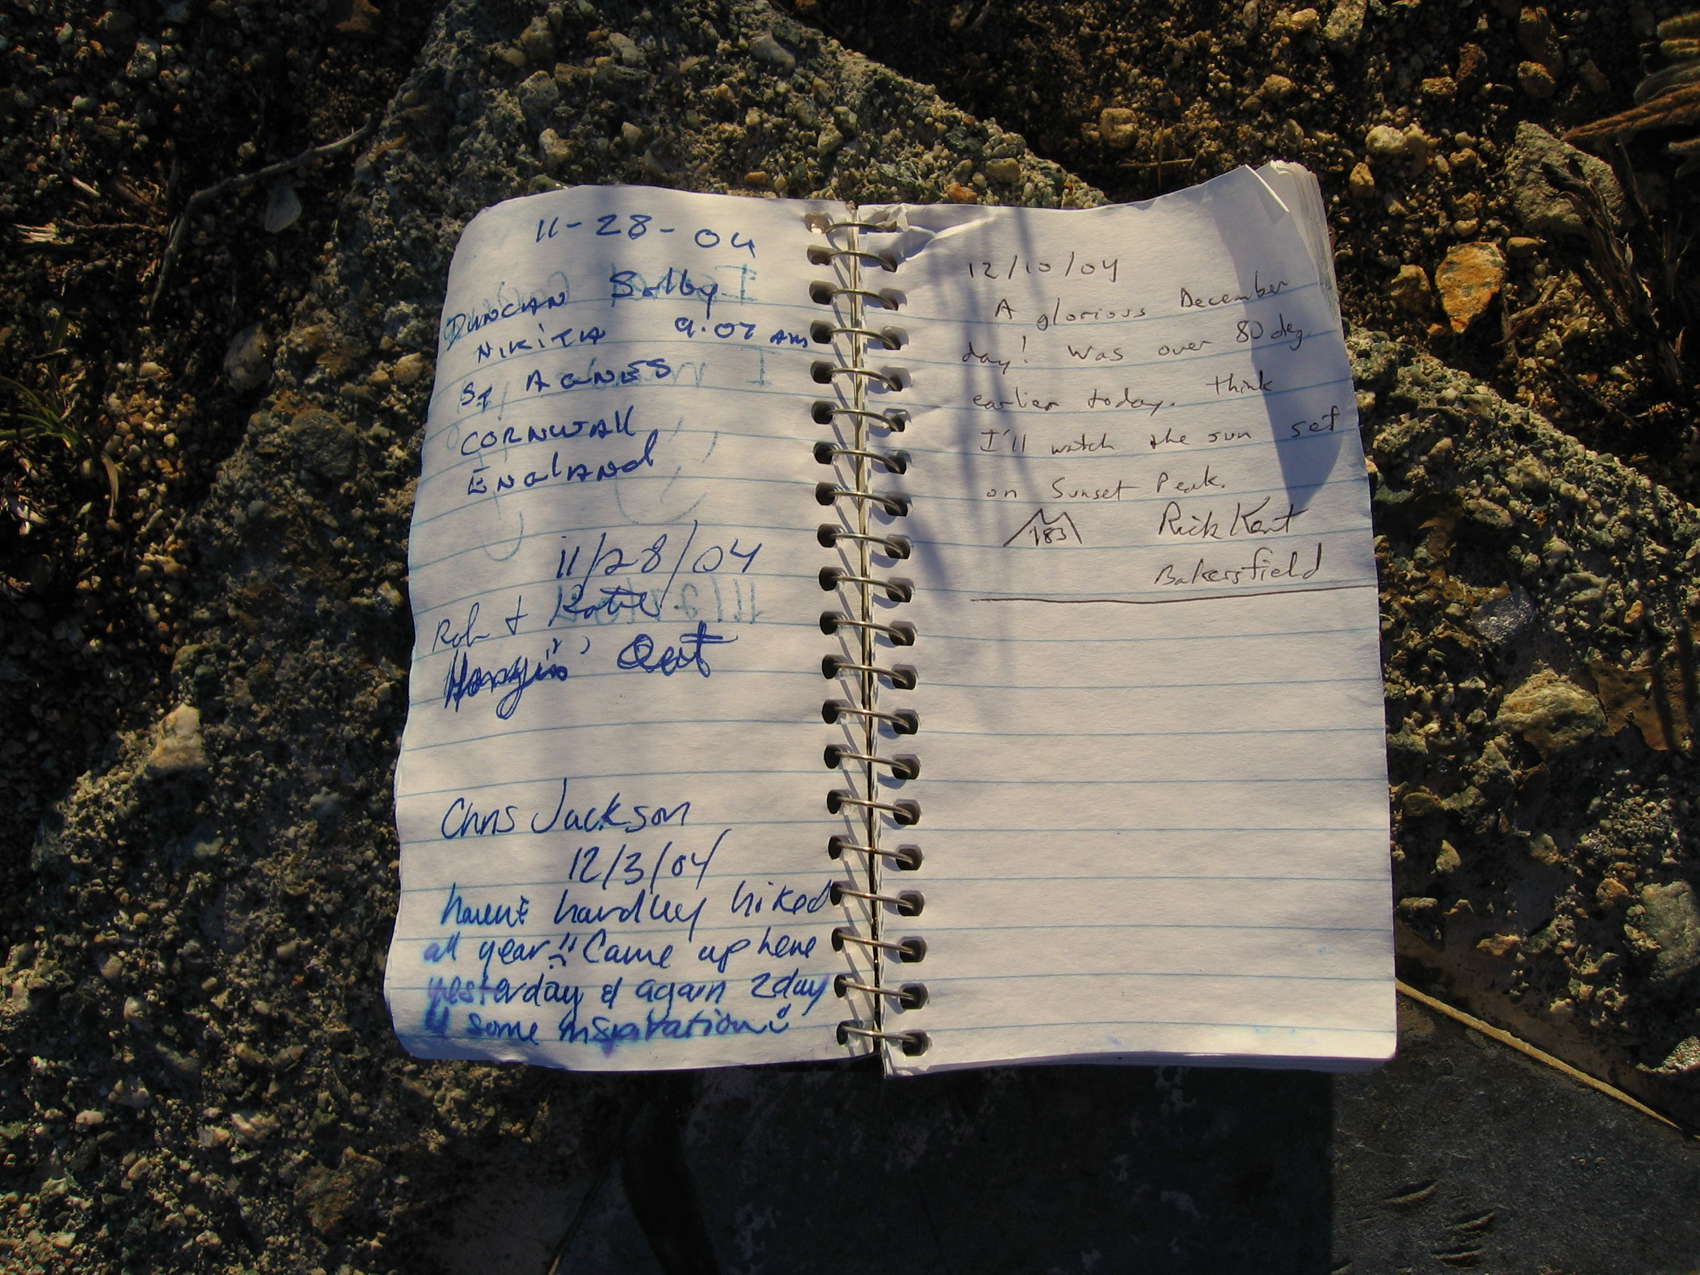 11-28-04
DUNCAN Selby
NIKITA 9.07 AM
ST AGNES
CORNWAll
ENGlANd
11/28/04
Rob + Katie
Hangin' Out
Chris Jackson
12/3/04
havent hardley hiked
all year!! Came up here
yesterday & again 2day
4 some inspiration
12/10/04
A glorious December
day! Was over 80 deg.
earlier today. Think
I'll watch the sun set
on Sunset Peak.
183 Rick Kent
Bakersfield